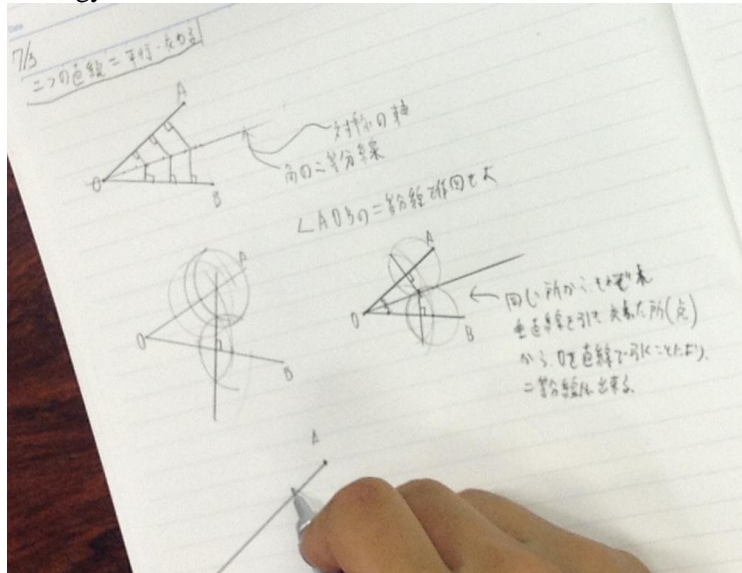 7/3
二つの直線=平行・交わる
A
O
B
対称の軸
角の二等分線
∠AOBの二等分線を作図せよ
A
O
B
A
O
B
同じ所から
垂直線を引き 交わった所(点)
から、Oを直線で引くことにより、
二等分線が出来る。
A